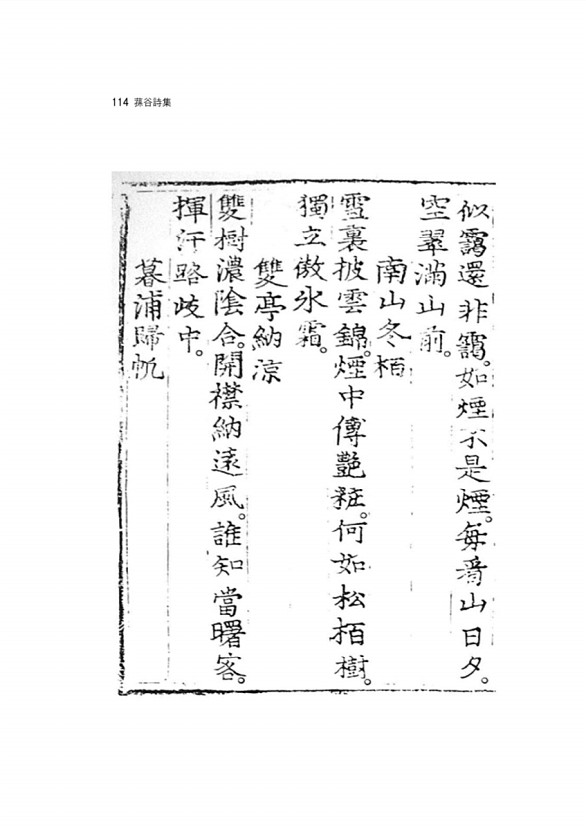 114 蓀谷詩集
似靄還非靄。如煙不是煙。每看山日夕。
空翠滿山前。
南山冬栢
雪裏披雲錦。煙中傳艶粧。何如松栢樹。
獨立傲氷霜。
雙亭納涼
雙樹濃陰合。開襟納遠風。誰知當曙客。
揮汗路歧中。
暮浦歸帆